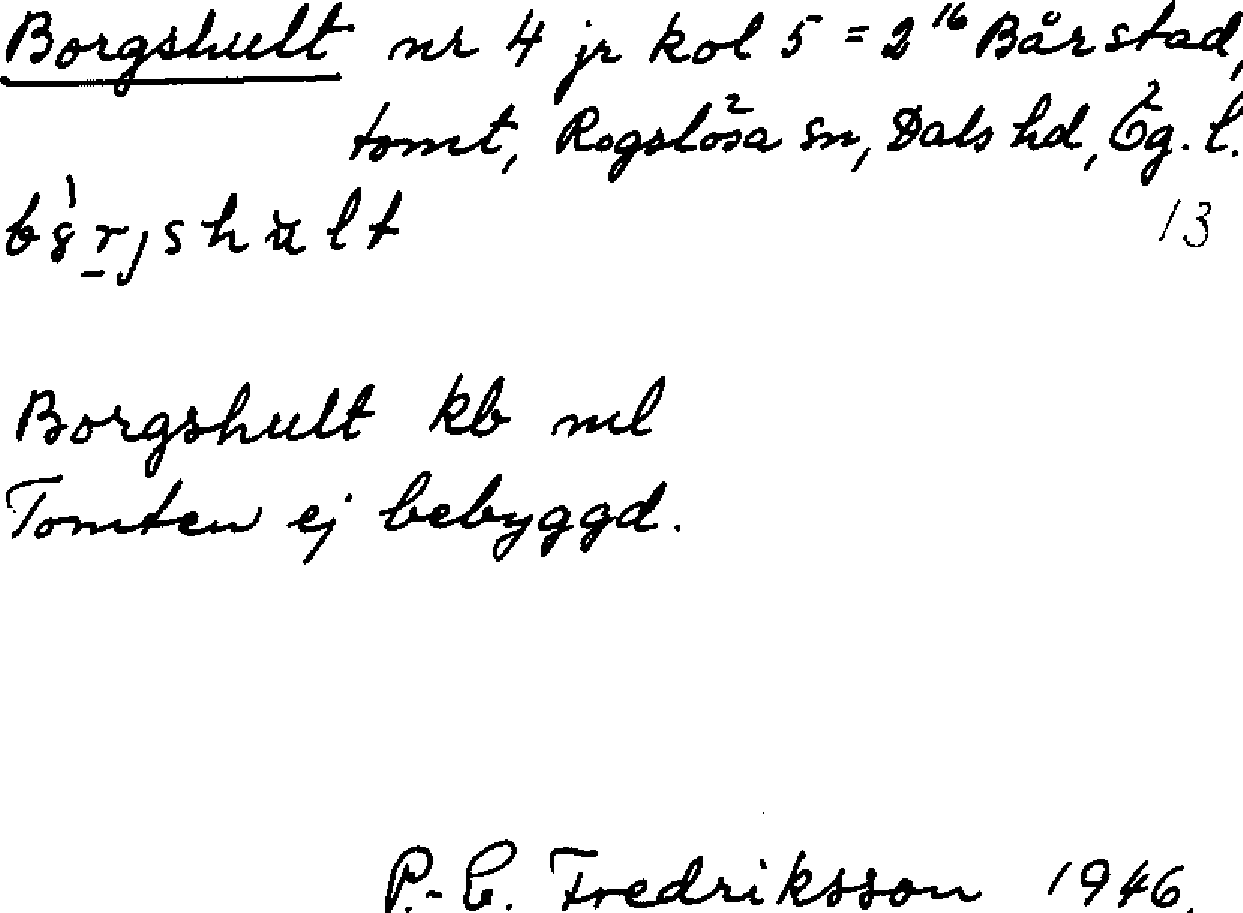 Borgshult nr 4 jr kol 5 = 2¹⁶ Bårstad,
tomt, Rogslösa sn, Dals hd, Ög. l.
13
Borgshult kb ml
Tomten ej bebyggd.
P.-E. Fredriksson 1946.